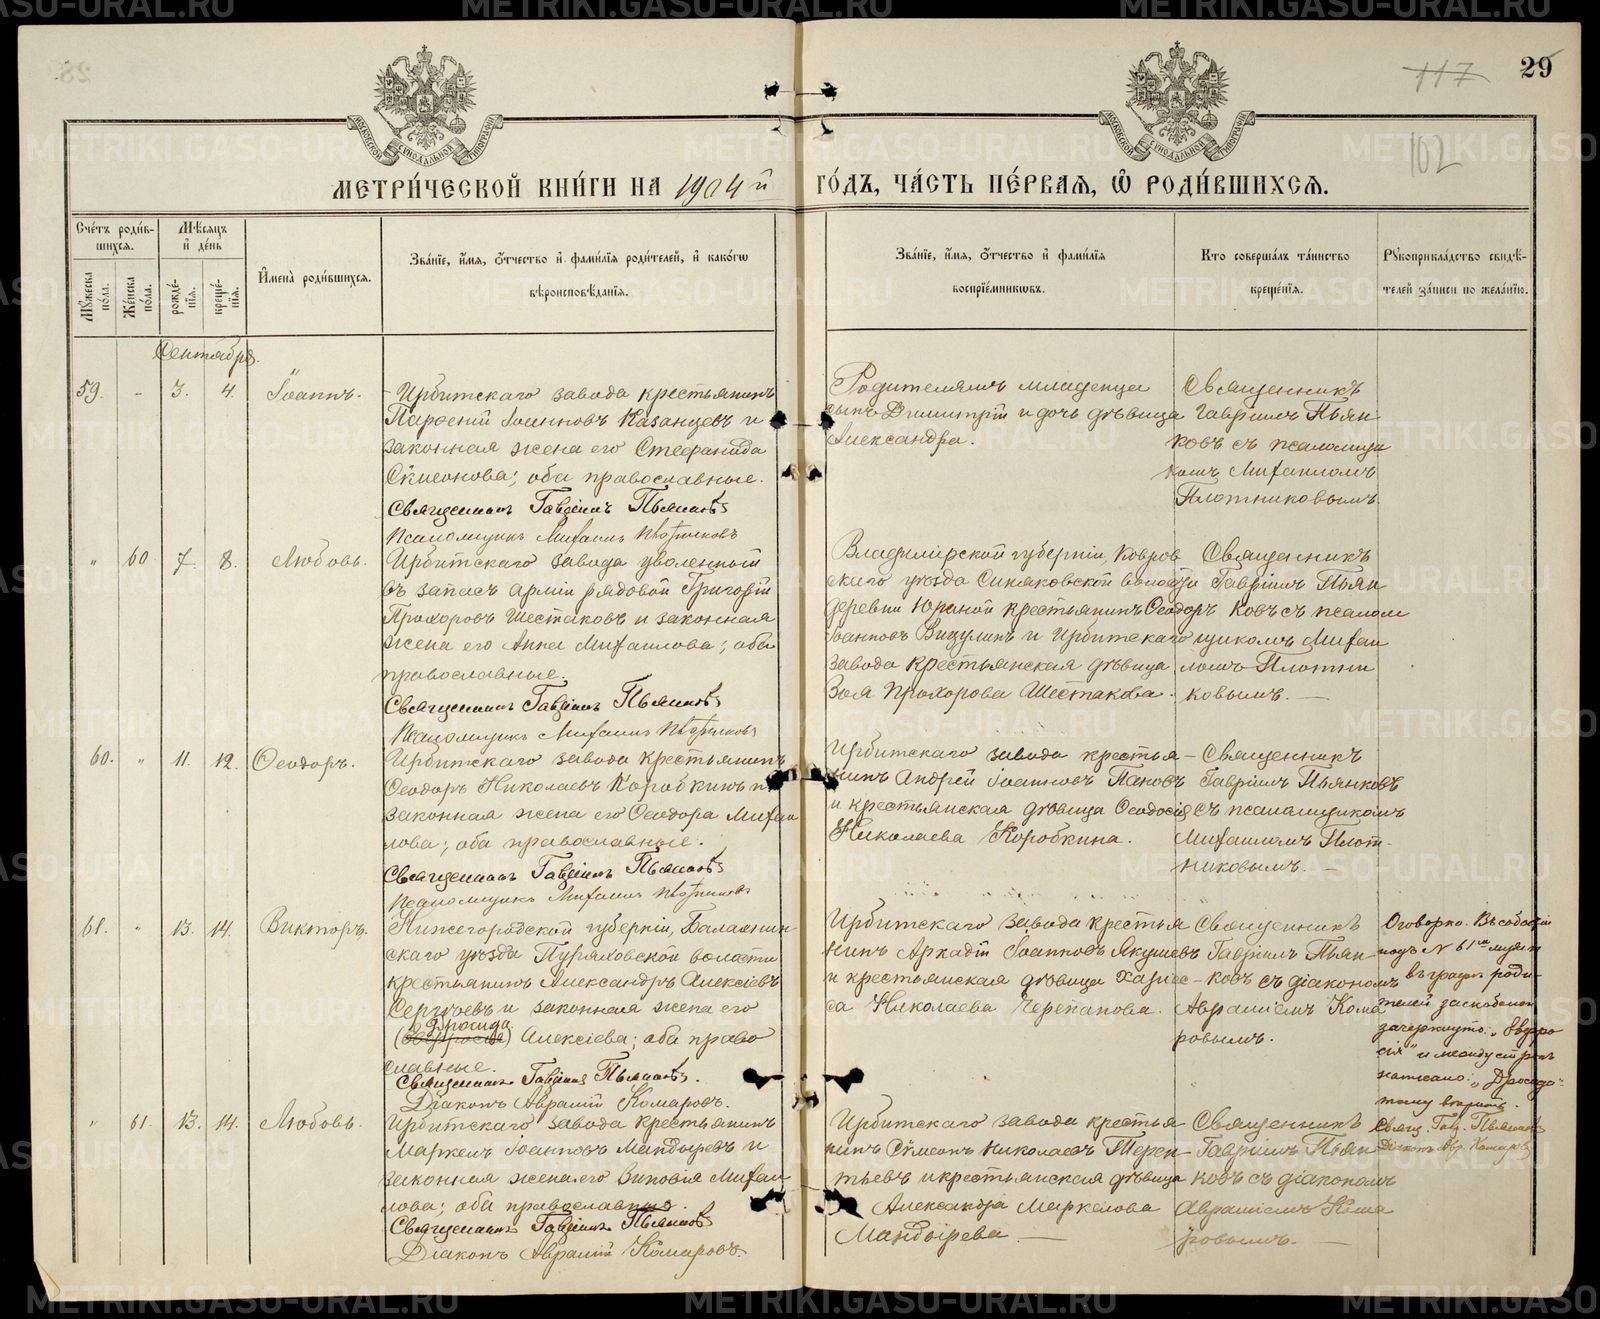 29
117
102
МЕТРИ́ЧЕСКОЙ КНИ́ГИ НА 1904й ГО́ДЪ, ЧА́СТЬ ПЕ́РВАЯ, Ѡ РОДИ́ВШИХСЯ.
Сче́тъ роди́в-
шихся.
Мѣ́сяцъ
и де́нь
Мꙋ́жеска
по́ла.
Же́нска
по́ла.
рожде́-
нїѧ.
креще́-
нїѧ.
И҆мена̀ роди́вшихсѧ.
Зва́нїе, и҆́мѧ, ѻ҆́тчество и҆ фами́лїѧ роди́телей, и҆ како́гѡ
вѣроисповѣ́данїѧ.
Зва́нїе, и҆́мѧ, ѻ҆́тчество и҆ фами́лїѧ
воспрїе́мникѡвъ.
Кто соверша́лъ та́инство
креще́нїѧ.
Рꙋкоприкла́дство свидѣ́-
телей за́писи по жела́нїю.
Сентябрь.
59. - 3. 4. Іоаннъ.
Ирбитскаго завода крестьянинъ
Парѳеній Іоанновъ Казанцевъ и
законная жена его Стефанида
Симеонова; оба православные.
Священникъ Гавріилъ Пьянковъ
Псаломщикъ Михаилъ Плотниковъ
Родителями младенца
сынъ Димитрій и дочь дѣвица
Александра.
Священникъ
Гавріилъ Пьян
ковъ съ псаломщи
комъ Михаиломъ
Плотниковымъ.
" 60 7. 8. Любовь.
Ирбитскаго завода уволенный
въ запасъ арміи рядовой Григорій
Прохоровъ Шестаковъ и законная
жена его Анна Михаилова; оба
православные.
Священникъ Гавріилъ Пьянковъ
Псаломщикъ Михаилъ Плотниковъ
Владимірской губерніи, Ковров
скаго уѣзда Синяковской волости
деревни Юриной крестьянинъ Ѳеодоръ
Іоанновъ Вицулинъ и Ирбитскаго
завода крестьянская дѣвица
Зоя Прохорова Шестакова.
Священникъ
Гавріилъ Пьян
ковъ съ псалом
щикомъ Михаи
ломъ Плотни
ковымъ.
60. " 11. 12. Ѳеодоръ.
Ирбитскаго завода крестьянинъ
Ѳеодоръ Николаевъ Коробкинъ и
законная жена его Ѳеодора Михаи
лова; оба православные.
Священникъ Гавріилъ Пьянковъ
Псаломщикъ Михаилъ Плотниковъ
Ирбитскаго завода крестья-
нинъ Андрей Іоанновъ Пановъ
и крестьянская дѣвица Ѳеодосія
Николаева Коробкина.
Священникъ
Гавріилъ Пьянковъ
съ псаломщикомъ
Михаиломъ Плот-
никовымъ.
61. " 13. 14. Викторъ.
Нижегородской губерніи, Балахнин-
скаго уѣзда Пуряховской волости
крестьянинъ Александръ Алексіевъ
Сергѣевъ и законная жена его
Дросида
(Евфросія) Алексіева; оба право
славные.
Священникъ Гавріилъ Пьянковъ.
Діаконъ Авраамій Комаровъ.
Ирбитскаго завода крестья
нинъ Аркадій Іоанновъ Якушевъ
и крестьянская дѣвица Харис-
са Николаева Черепанова.
Священникъ
Гавріилъ Пьян-
ковъ съ діакономъ
Авраамiемъ Кома
ровымъ.
Оговорка. Въ событіи
подъ № 61м муж. п.
въ графѣ роди-
телей заскоблено
зачеркнуто: „Евфро
сія" и между строкъ
написано: „Дросида"
тому вѣрить.
Свящ. Гав. Пьянковъ
Діаконъ Авр. Комаровъ
" 61. 13. 14. Любовь.
Ирбитскаго завода крестьянинъ
Маркелъ Іоанновъ Мандыревъ и
законная жена его Зиновія Михаи
лова; оба православные.
Священникъ Гавріилъ Пьянковъ
Діаконъ Авраамій Комаровъ.
Ирбитскаго завода крестья
нинъ Симеонъ Николаевъ Терен-
тьевъ и крестьянская дѣвица
Александра Маркелова
Мандырева
Священникъ
Гавріилъ Пьян
ковъ съ діакономъ
Авраамiемъ Кома
ровымъ.
METRIKI.GASO-URAL.RU